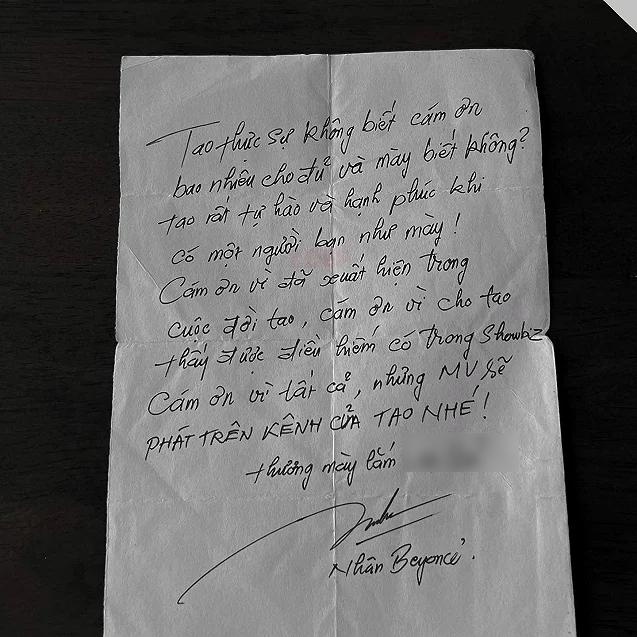 Tao thực sự không biết cám ơn
bao nhiêu cho đủ và mày biết không?
tao rất tự hào và hạnh phúc khi
có một người bạn như mày!
Cám ơn vì đã xuất hiện trong
cuộc đời tao, cám ơn vì cho tao
thấy được điều hiếm có trong Showbiz
Cám ơn vì tất cả, nhưng MV sẽ
PHÁT TRÊN KÊNH CỦA TAO NHÉ!
thương mày lắm
Nhân Beyoncé.